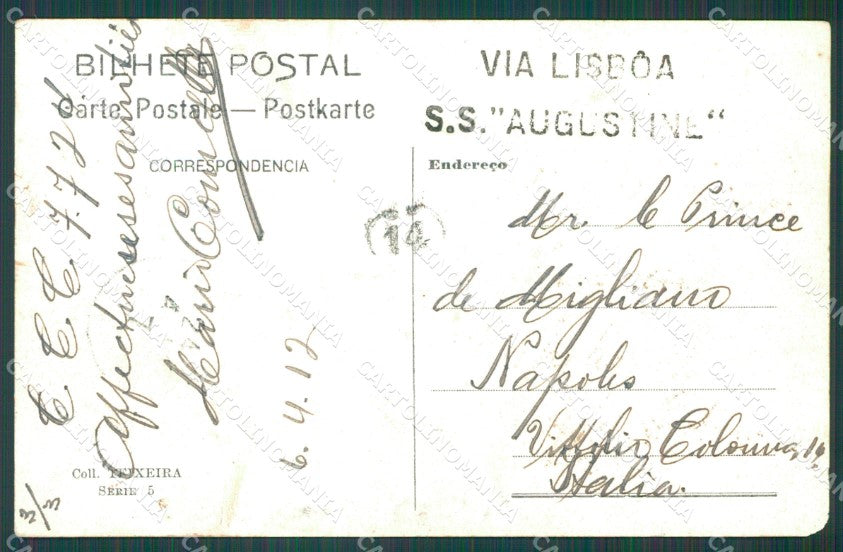 BILHETE POSTAL
Carte Postale — Postkarte
CORRESPONDENCIA
T. C. C. 7.724
Mario
6.4.12
Coll. TEIXEIRA
SERIE 5
VIA LISBÔA
S.S. "AUGUSTINE"
Endereço
14
Mr. le Prince
de Migliano
Napoles
Vittoria Colonna, 14
Italia.
CARTOLINOMANIA